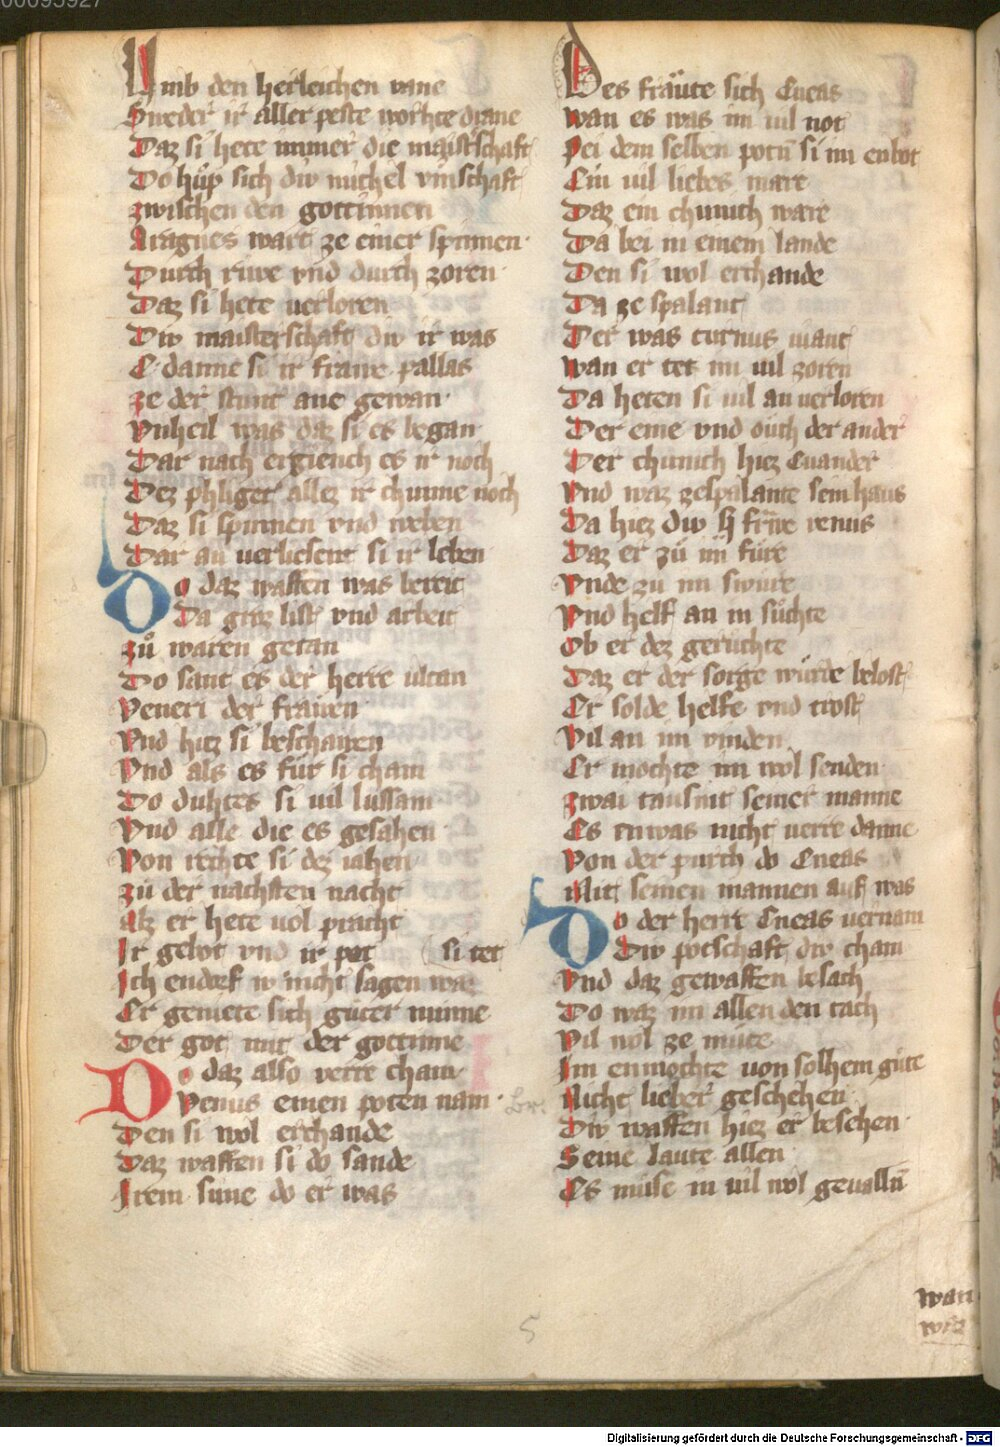 00095927
Umb den herleichen vane
Sweder ir aller peste worhte dyane
Daz si hete immer die maisterschaft
Do hůp sich diw michel vinschaft
zwischen den gottinnen
Aragnes wart ze einer spinnen
Durch riwe vnd durch zoren
Daz si hete verloren
Diw maisterschaft diw ir was
E danne si ir frawe pallas
ze der stunt ane gewan
Vnheil was daz si es began
Dar nach ergiench es ir noch
Dez phliget allez ir chunne noch
Daz si spinnen vnd weben
Dar an verliesent si ir leben
Do daz waffen was bereit
Da groz list vnd arbeit
zů waren getan
Do sant es der herre ulcan
Veneri der frawen
Vnd hiez si beschawen
Vnd als es fur si cham
Do duhtes si uil lussam
Vnd alle die es gesahen
Von rechte si dez iahen
zu der nachsten nacht
alz er hete uol pracht
Ir gebot vnd ir pet (si tet
Ich endorf iv nicht sagen waz
Er geniete sich guter minne
Der got mit der gottinne
Do daz also verre cham
Venus einen poten nam
Den si wol erchande
Daz waffen si do sande
Irem sune do er was
Des fräute sich Eneas
wan es was im uil not
Pei dem selben potn̄ si im enbot
Ein uil liebes mare
Daz ein chunich ware
Da bei in einem lande
Den si wol erchande
Da ze spalant
Der was turnus uiant
wan er tet im uil zoren
Da heten si uil an verloren
Der eine vnd ouch der ander
Der chunich hiez Euander
Vnd waz zespalante sein haus
Da hiez diw h̄ frawe venus
Daz er zu im fure
Vnde zu im swure
Vnd helf an in sůchte
Ob er dez geruchte
Daz er der sorge wurde belost
Er solde helfe vnd trost
Vil an im vinden
Er mochte im wol senden
zwai tausint seiner manne
Es enwas nicht uerre danne
Von der purch do Eneas
Mit seinen mannen auf was
Do der herre Eneas uernam
Diw potschaft diw cham
Vnd daz gewaffen besach
Do waz im allen den tach
Vil wol ze mute
Im enmochte uon solhem gute
Nicht lieber geschehen
Diw waffen hiez er beschen
Seine laute allen
Es muse in uil wol geualln̄
wan
5
Digitalisierung gefördert durch die Deutsche Forschungsgemeinschaft - DFG